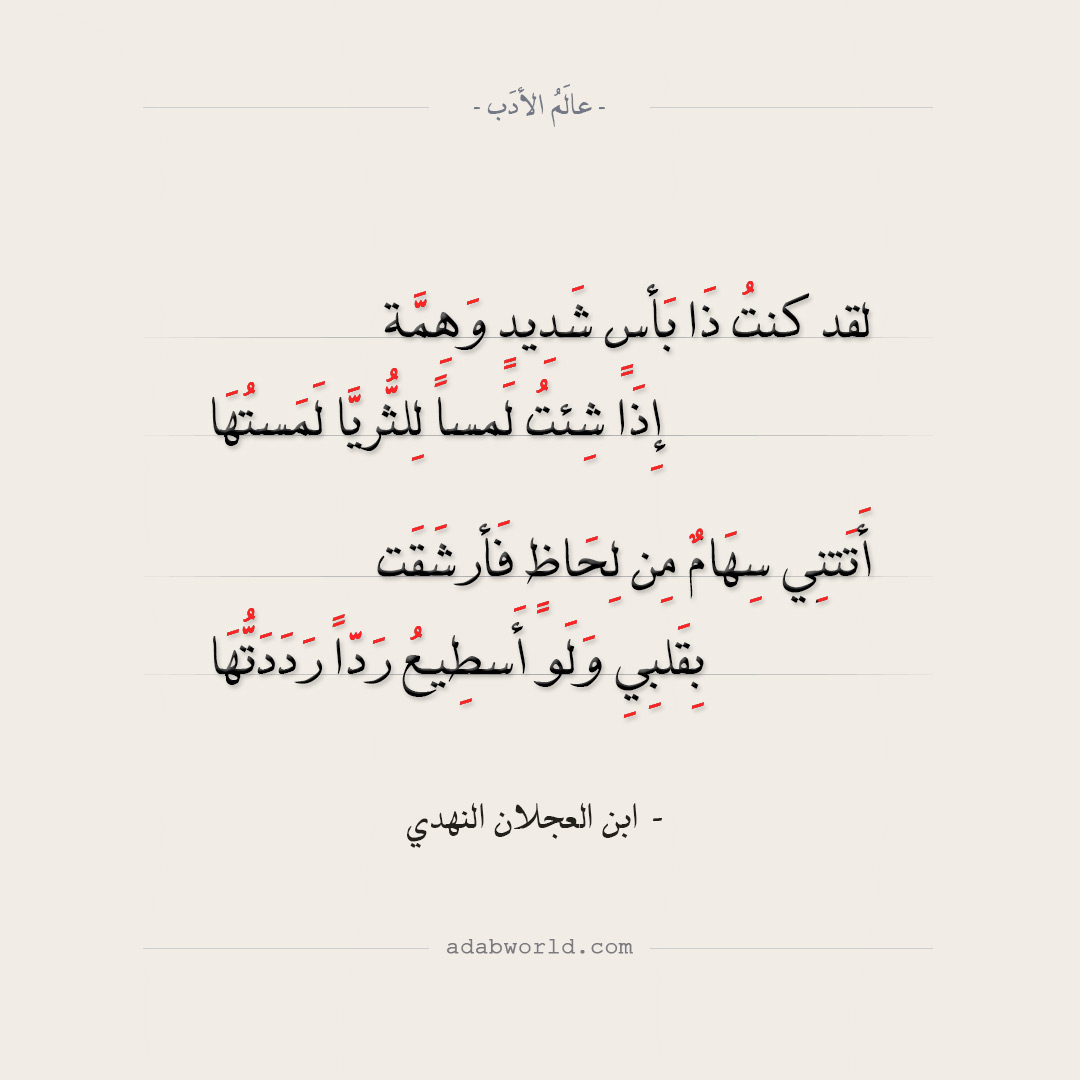 - عالَمُ الأدَب -
لقد كنتُ ذَا بَأس شَدِيدٍ وَهِمَّة
إِذَا شِئتُ لَمساً لِلثُّريَّا لَمَستُهَا
أَتَتنِي سِهَامٌ مِن لِحَاظٍ فَأرشَقَت
بِقَلبِي وَلَو أَسطِيعُ رَدّاً رَدَدَتُّهَا
- ابن العجلان النهدي
adabworld.com